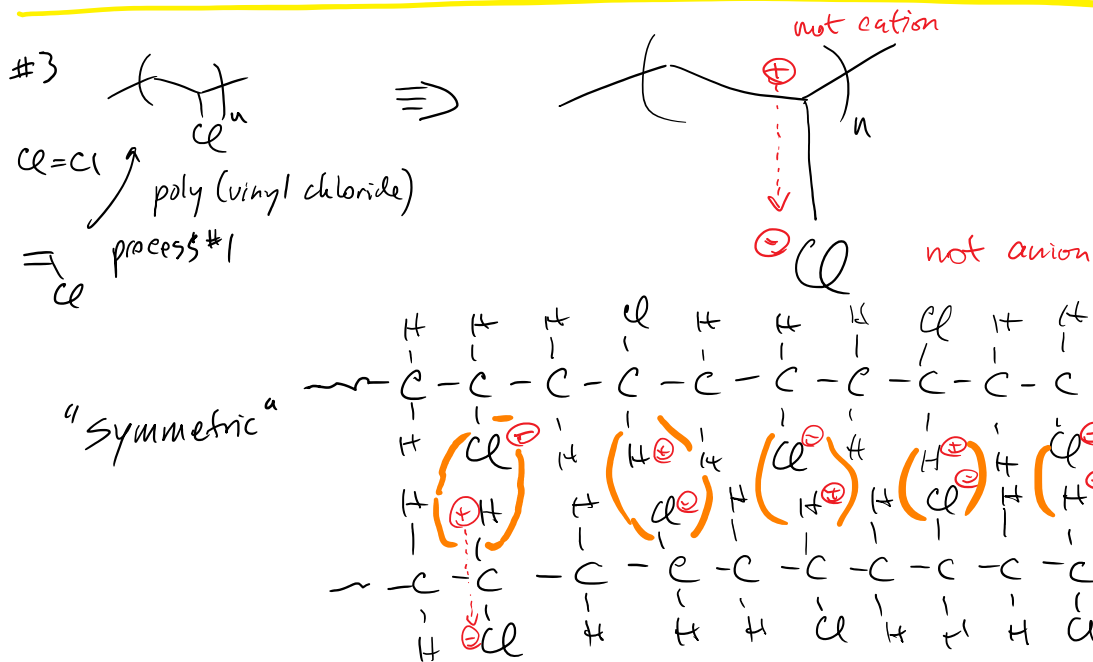 #3
n
Cl
Cl=Cl
poly (vinyl chloride)
process #1
Cl
not cation
+
n
-
Cl
not anion
"Symmetric"
H H H Cl H H H Cl H H
C - C - C - C - C - C - C - C - C - C
H Cl - H H + H Cl - H H + H Cl -
H + H H Cl - H H + H Cl - H H
- C - C - C - C - C - C - C - C - C - C
H - Cl H H H Cl H H H Cl